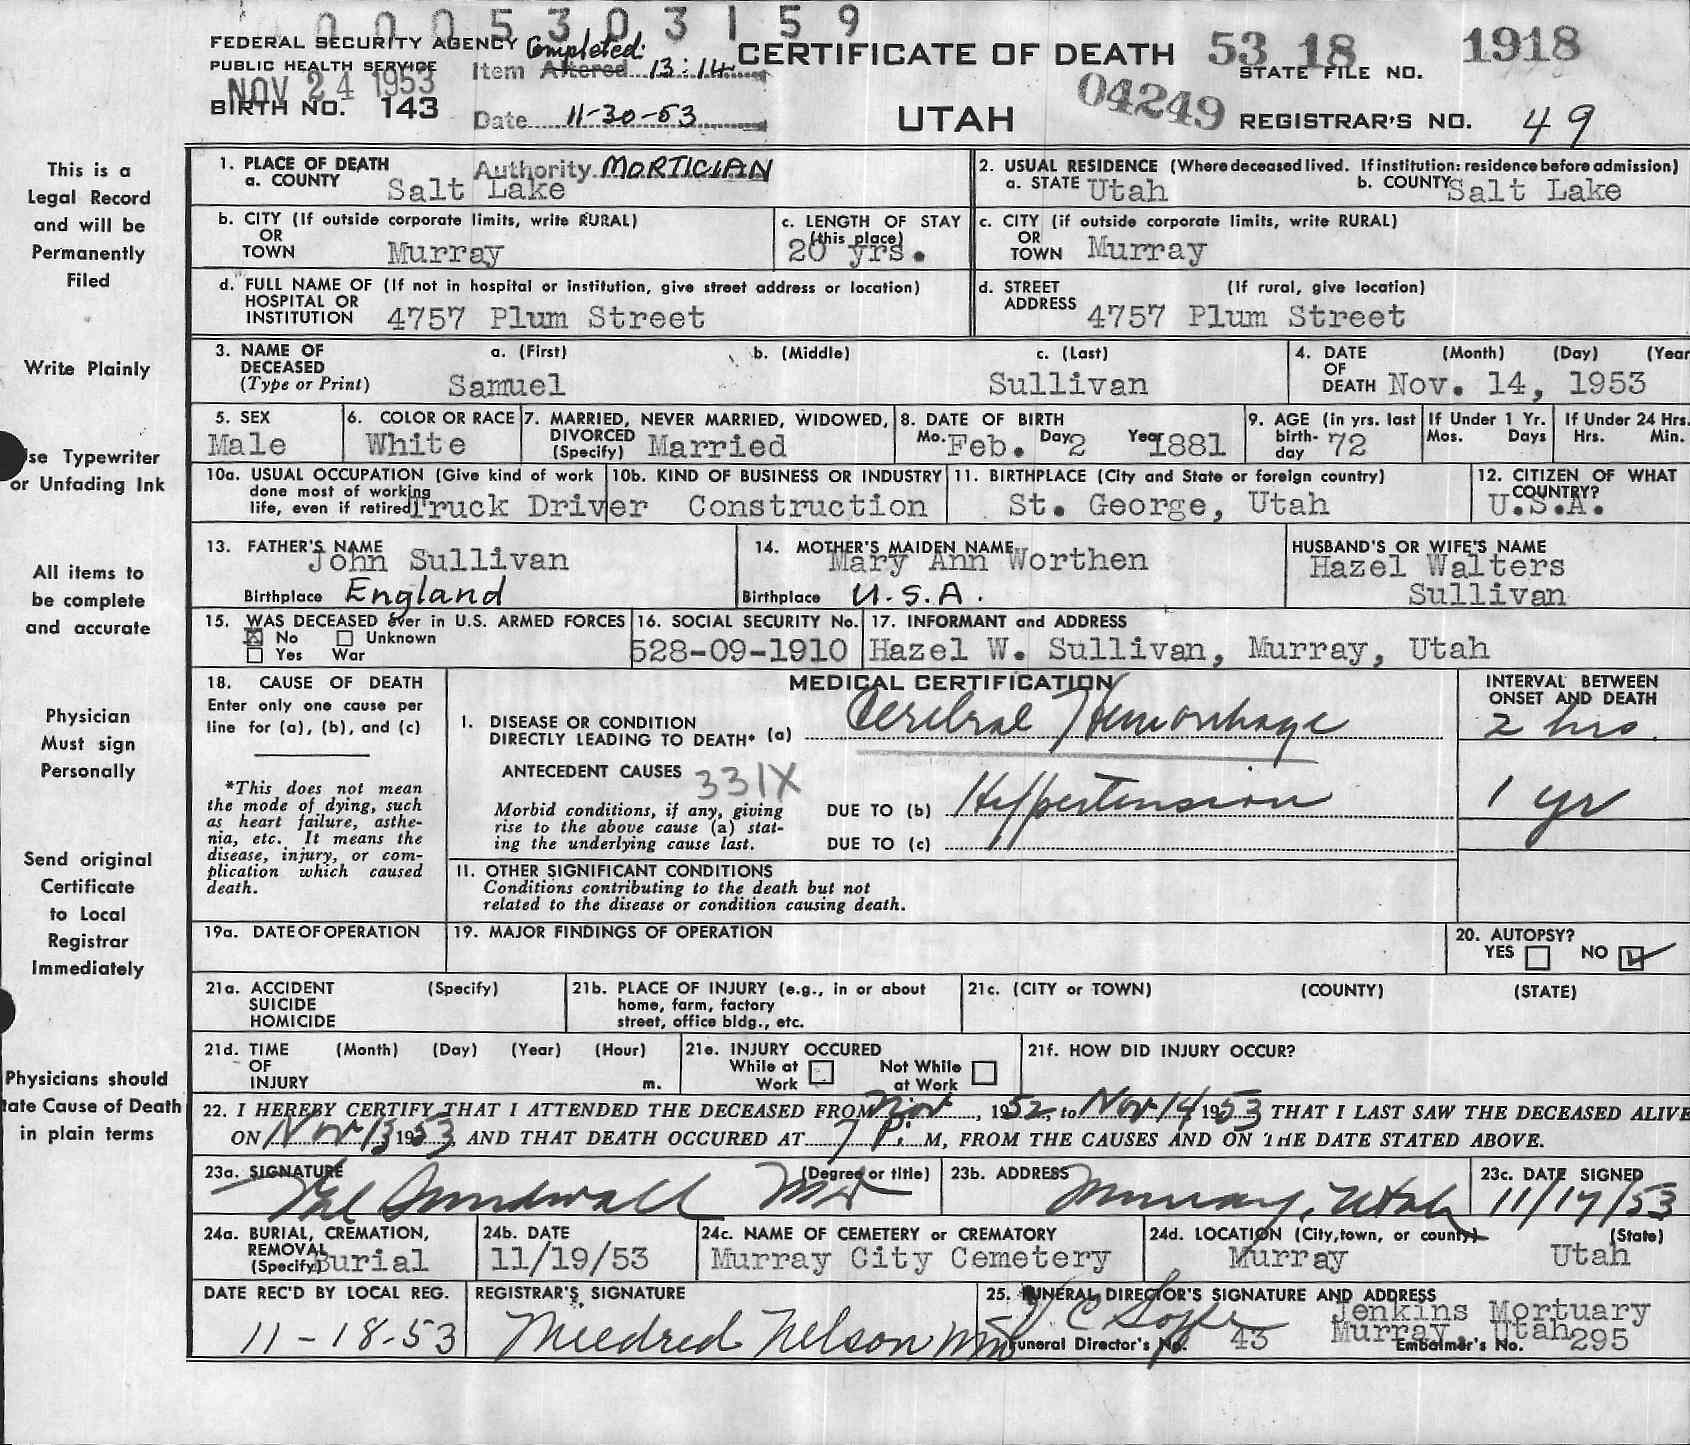 0005303159
FEDERAL SECURITY AGENCY Completed: CERTIFICATE OF DEATH 53 18 1918
PUBLIC HEALTH SERVICE Item Altered 13:14 STATE FILE NO.
NOV 24 1953
BIRTH NO. 143 Date 11-30-53 UTAH 04249 REGISTRAR'S NO. 49
1. PLACE OF DEATH Authority MORTICIAN 2. USUAL RESIDENCE (Where deceased lived. If institution: residence before admission)
a. COUNTY Salt Lake a. STATE Utah b. COUNTY Salt Lake
b. CITY (If outside corporate limits, write RURAL) c. LENGTH OF STAY c. CITY (if outside corporate limits, write RURAL)
OR (this place) OR
TOWN Murray 20 yrs. TOWN Murray
d. FULL NAME OF (If not in hospital or institution, give street address or location) d. STREET (If rural, give location)
HOSPITAL OR ADDRESS 4757 Plum Street
INSTITUTION 4757 Plum Street
3. NAME OF a. (First) b. (Middle) c. (Last) 4. DATE (Month) (Day) (Year
DECEASED OF
(Type or Print) Samuel Sullivan DEATH Nov. 14, 1953
5. SEX 6. COLOR OR RACE 7. MARRIED, NEVER MARRIED, WIDOWED, 8. DATE OF BIRTH 9. AGE (in yrs. last If Under 1 Yr. If Under 24 Hrs.
Male White DIVORCED (Specify) Married Mo. Feb. Day 2 Year 1881 birth-day 72 Mos. Days Hrs. Min.
10a. USUAL OCCUPATION (Give kind of work 10b. KIND OF BUSINESS OR INDUSTRY 11. BIRTHPLACE (City and State or foreign country) 12. CITIZEN OF WHAT
done most of working COUNTRY?
life, even if retired) Truck Driver Construction St. George, Utah U.S.A.
13. FATHER'S NAME 14. MOTHER'S MAIDEN NAME HUSBAND'S OR WIFE'S NAME
John Sullivan Mary Ann Worthen Hazel Walters
Birthplace England Birthplace U.S.A. Sullivan
15. WAS DECEASED ever in U.S. ARMED FORCES 16. SOCIAL SECURITY No. 17. INFORMANT and ADDRESS
No Unknown
Yes War 528-09-1910 Hazel W. Sullivan, Murray, Utah
18. CAUSE OF DEATH MEDICAL CERTIFICATION INTERVAL BETWEEN
Enter only one cause per ONSET AND DEATH
line for (a), (b), and (c) I. DISEASE OR CONDITION
DIRECTLY LEADING TO DEATH* (a) Cerebral Hemorrhage 2 hrs.
ANTECEDENT CAUSES 331X
*This does not mean
the mode of dying, such
as heart failure, asthe-
nia, etc. It means the
disease, injury, or com-
plication which caused
death.
Morbid conditions, if any, giving DUE TO (b) Hypertension 1 yr
rise to the above cause (a) stat-
ing the underlying cause last. DUE TO (c)
11. OTHER SIGNIFICANT CONDITIONS
Conditions contributing to the death but not
related to the disease or condition causing death.
19a. DATE OF OPERATION 19. MAJOR FINDINGS OF OPERATION 20. AUTOPSY?
YES NO
21a. ACCIDENT (Specify) 21b. PLACE OF INJURY (e.g., in or about 21c. (CITY or TOWN) (COUNTY) (STATE)
SUICIDE home, farm, factory
HOMICIDE street, office bldg., etc.
21d. TIME (Month) (Day) (Year) (Hour) 21e. INJURY OCCURED 21f. HOW DID INJURY OCCUR?
OF While at Not While
INJURY m. Work at Work
22. I HEREBY CERTIFY THAT I ATTENDED THE DECEASED FROM Nov, 1952, to Nov 14 1953 THAT I LAST SAW THE DECEASED ALIVE
ON Nov 13 1953, AND THAT DEATH OCCURED AT 7 P. M, FROM THE CAUSES AND ON THE DATE STATED ABOVE.
23a. SIGNATURE (Degree or title) 23b. ADDRESS 23c. DATE SIGNED
Val Sundwall MD Murray, Utah 11/17/53
24a. BURIAL, CREMATION, 24b. DATE 24c. NAME OF CEMETERY or CREMATORY 24d. LOCATION (City, town, or county) (State)
REMOVAL
(Specify) Burial 11/19/53 Murray City Cemetery Murray Utah
DATE REC'D BY LOCAL REG. REGISTRAR'S SIGNATURE 25. FUNERAL DIRECTOR'S SIGNATURE AND ADDRESS
11-18-53 Mildred Nelson Jenkins Mortuary
Murray, Utah
Funeral Director's No. 43 Embalmer's No. 295
This is a
Legal Record
and will be
Permanently
Filed
Write Plainly
se Typewriter
or Unfading Ink
All items to
be complete
and accurate
Physician
Must sign
Personally
Send original
Certificate
to Local
Registrar
Immediately
Physicians should
tate Cause of Death
in plain terms